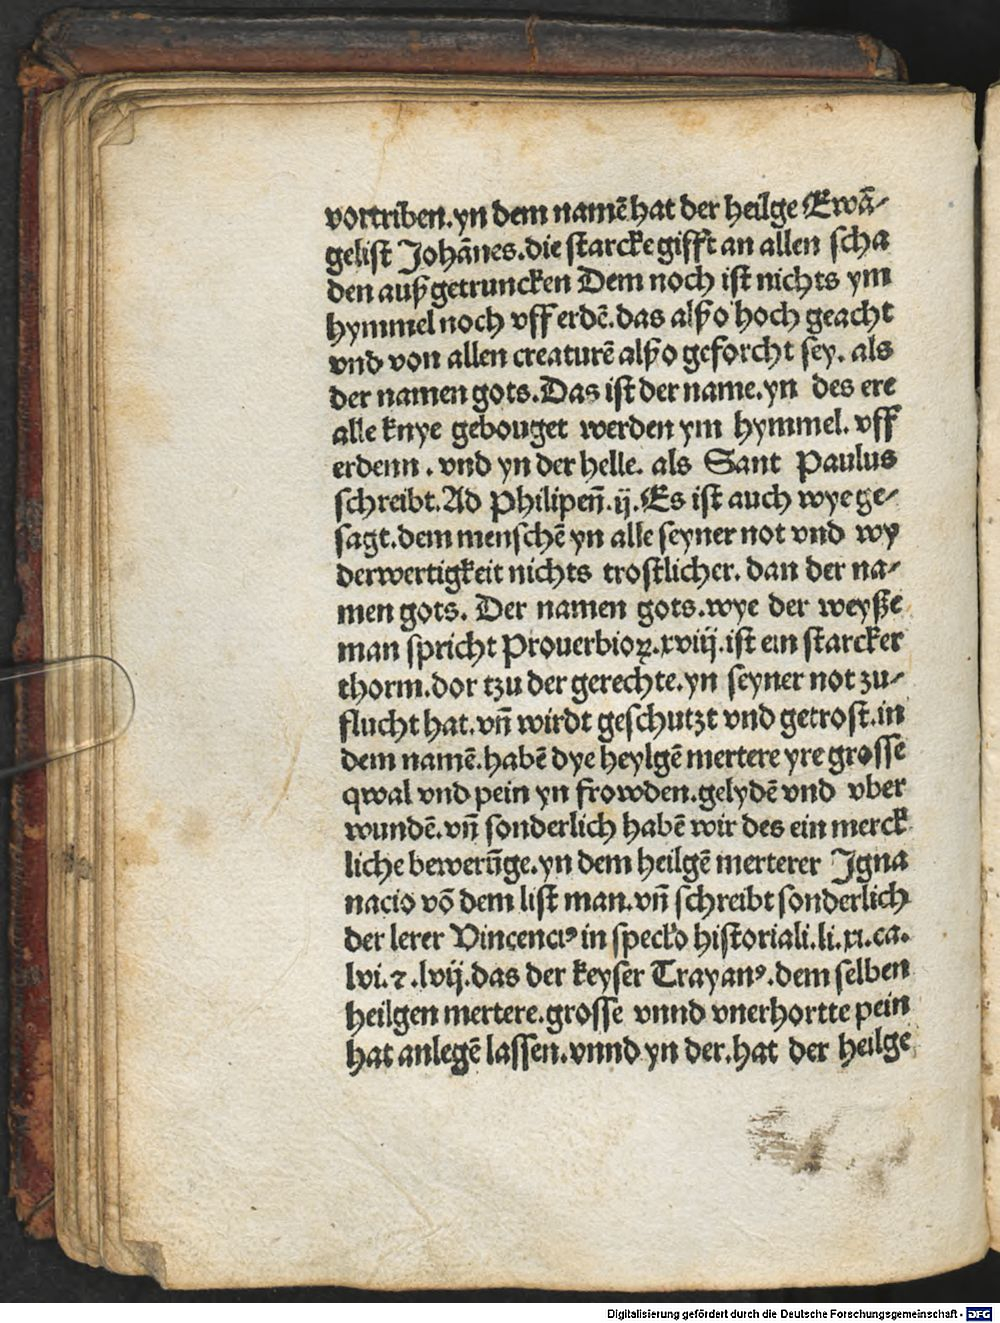 vortriben.yn dem namē hat der heilge Ewā-
gelist Johānes.die starcke gifft an allen scha
den außgetruncken Dem noch ist nichts ym
hymmel noch vff erdē.das alßo hoch geacht
vnd von allen creaturē alßo geforcht sey. als
der namen gots.Das ist der name.yn des ere
alle knye gebouget werden ym hymmel. vff
erdenn. vnd yn der helle. als Sant Paulus
schreibt.Ad Philipen̄.ij.Es ist auch wye ge-
sagt.dem menschē yn alle seyner not vnd wy
derwertigkeit nichts trostlicher. dan der na-
men gots. Der namen gots.wye der weyße
man spricht Prouerbioꝝ.xviij.ist ein starcker
thorm.dor tzu der gerechte.yn seyner not zu-
flucht hat.vn̄ wirdt geschutzt vnd getrost.in
dem namē.habē dye heylgē mertere yre grosse
qwal vnd pein yn frowden.gelydē vnd vber
wundē.vn̄ sonderlich habē wir des ein merck
liche bewerūge.yn dem heilgē merterer Jgna
nacio vō dem list man.vn̄ schreibt sonderlich
der lerer Vincenciꝰ in specko historiali.li.xi.ca.
lvi.⁊.lvij.das der keyser Trayanꝰ.dem selben
heilgen mertere.grosse vnnd vnerhortte pein
hat anlegē lassen.vnnd yn der.hat der heilge
Digitalisierung gefördert durch die Deutsche Forschungsgemeinschaft - DFG